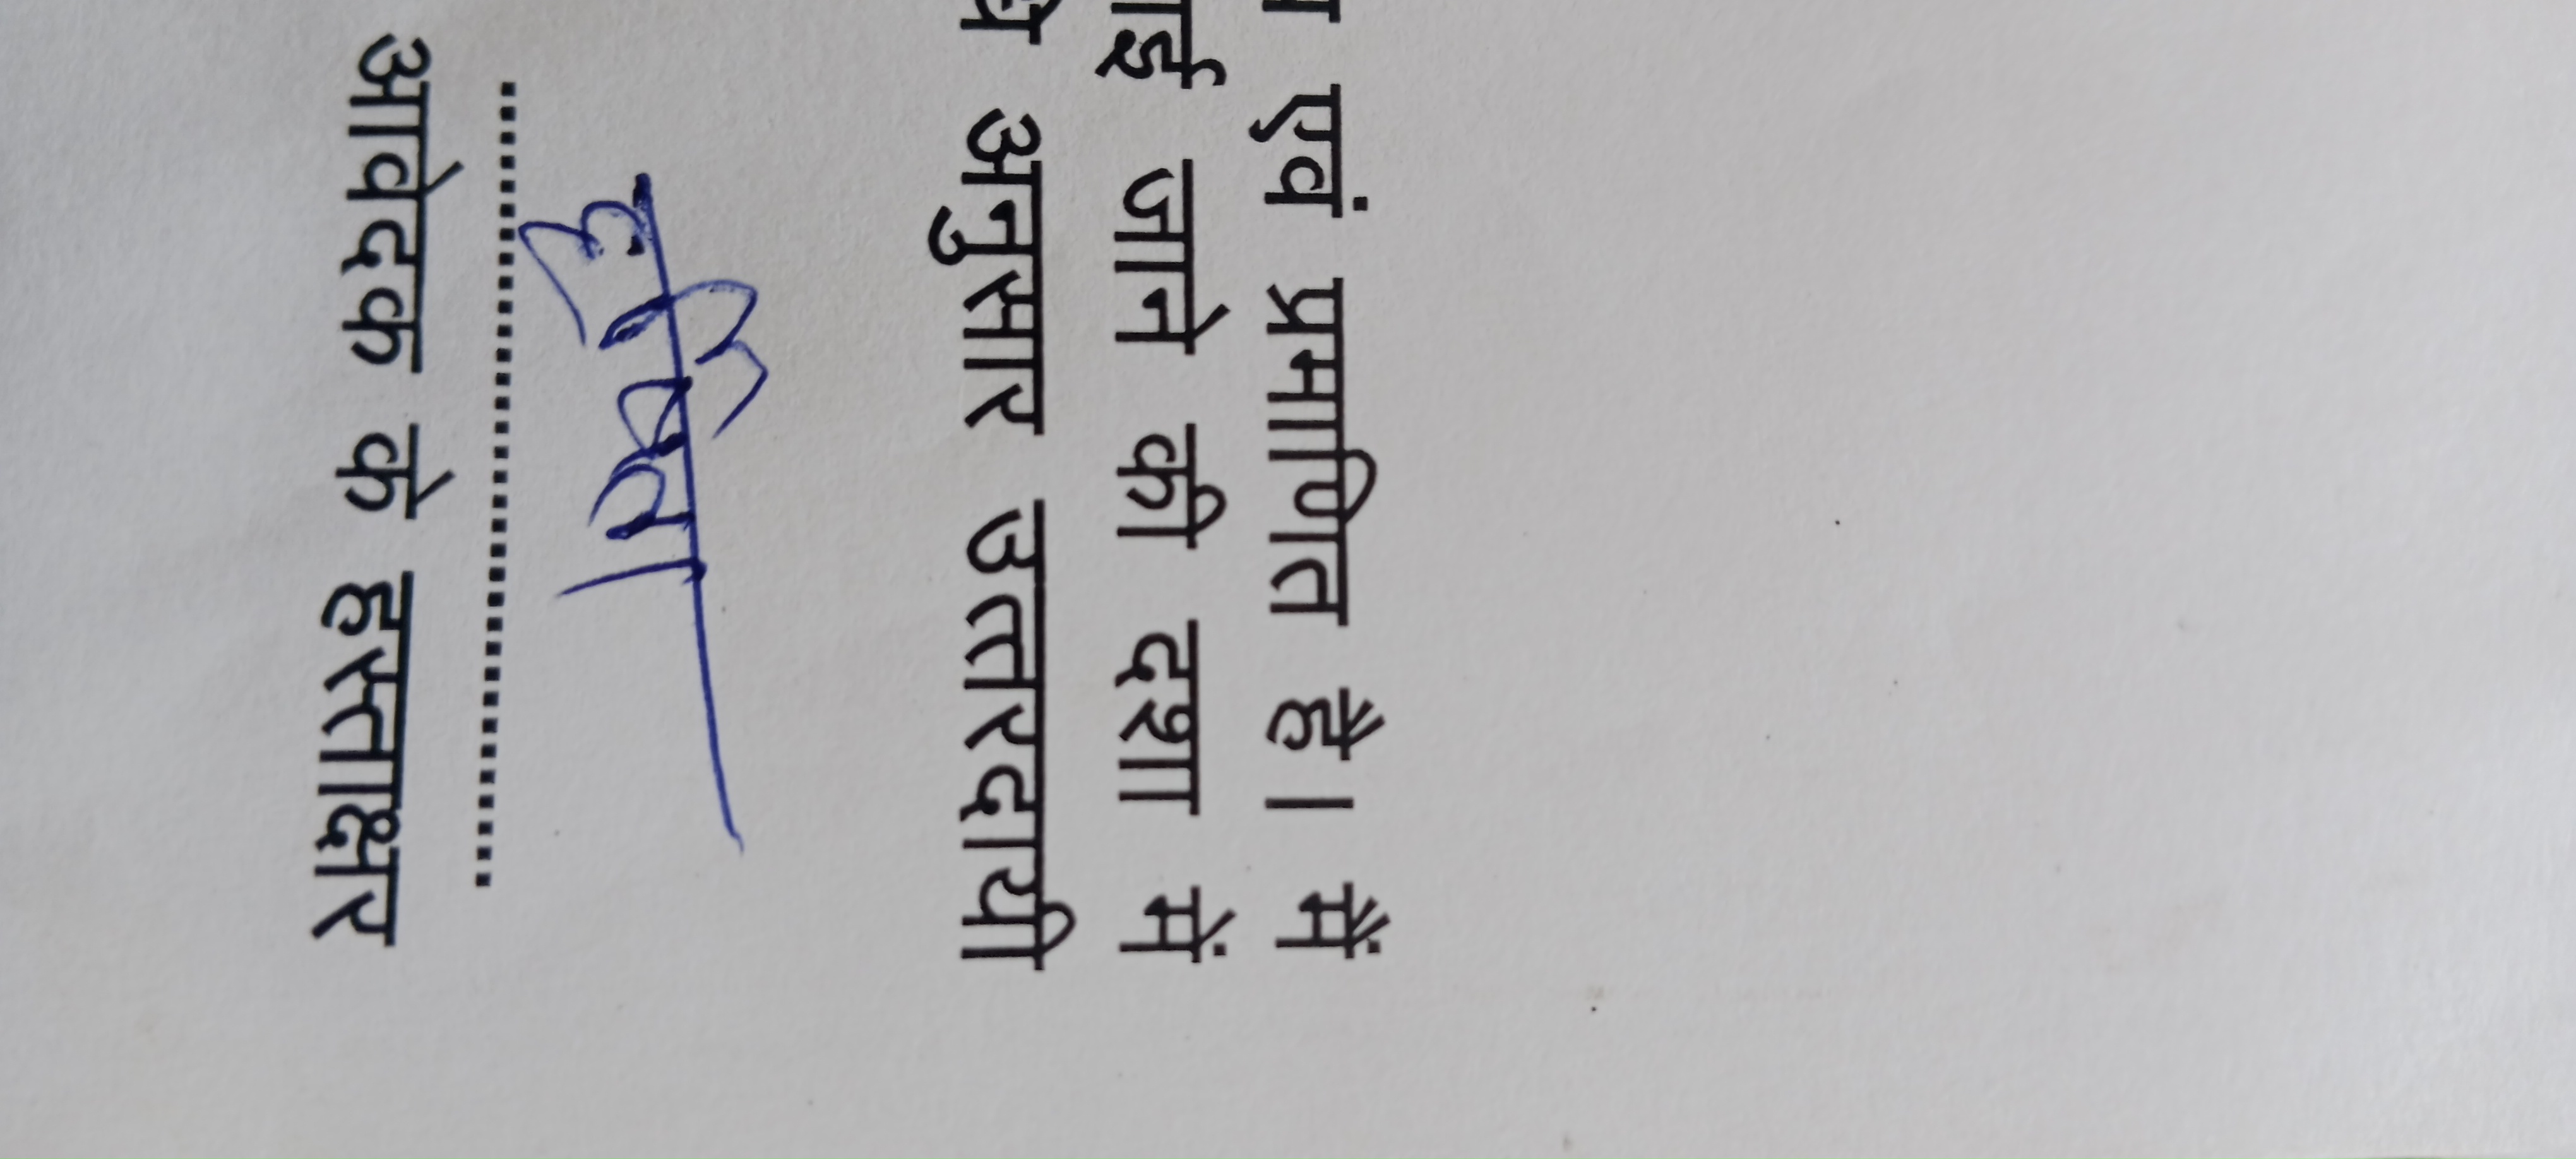 एवं प्रमाणित है। मैं
जाने की दशा में
अनुसार उत्तरदायी
आवेदक के हस्ताक्षर